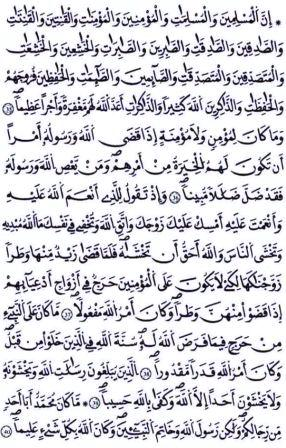 * إِنَّ الْمُسْلِمِينَ وَالْمُسْلِمَٰتِ وَالْمُؤْمِنِينَ وَالْمُؤْمِنَٰتِ وَالْقَٰنِتِينَ وَالْقَٰنِتَٰتِ
وَالصَّٰدِقِينَ وَالصَّٰدِقَٰتِ وَالصَّٰبِرِينَ وَالصَّٰبِرَٰتِ وَالْخَٰشِعِينَ وَالْخَٰشِعَٰتِ
وَالْمُتَصَدِّقِينَ وَالْمُتَصَدِّقَٰتِ وَالصَّٰئِمِينَ وَالصَّٰئِمَٰتِ وَالْحَٰفِظِينَ فُرُوجَهُمْ
وَالْحَٰفِظَٰتِ وَالذَّٰكِرِينَ اللَّهَ كَثِيرًا وَالذَّٰكِرَٰتِ أَعَدَّ اللَّهُ لَهُم مَّغْفِرَةً وَأَجْرًا عَظِيمًا
وَمَا كَانَ لِمُؤْمِنٍ وَلَا مُؤْمِنَةٍ إِذَا قَضَى اللَّهُ وَرَسُولُهُ أَمْرًا
أَن تَكُونَ لَهُمُ الْخِيَرَةُ مِنْ أَمْرِهِمْ وَمَنْ يَعْصِ اللَّهَ وَرَسُولَهُ
فَقَد ضَّلَّ ضَلَٰلًا مُّبِينًا وَإِذْ تَقُولُ لِلَّذِي أَنْعَمَ اللَّهُ عَلَيْهِ
وَأَنْعَمْتَ عَلَيْهِ أَمْسِكْ عَلَيْكَ زَوْجَكَ وَاتَّقِ اللَّهَ وَتُخْفِي فِي نَفْسِكَ مَا اللَّهُ مُبْدِيهِ
وَتَخْشَى النَّاسَ وَاللَّهُ أَحَقُّ أَن تَخْشَىٰهُ فَلَمَّا قَضَىٰ زَيْدٌ مِّنْهَا وَطَرًا
زَوَّجْنَٰكَهَا لِكَيْ لَا يَكُونَ عَلَى الْمُؤْمِنِينَ حَرَجٌ فِي أَزْوَٰجِ أَدْعِيَائِهِمْ
إِذَا قَضَوْا مِنْهُنَّ وَطَرًا وَكَانَ أَمْرُ اللَّهِ مَفْعُولًا مَّا كَانَ عَلَى النَّبِيءِ
مِنْ حَرَجٍ فِيمَا فَرَضَ اللَّهُ لَهُ سُنَّةَ اللَّهِ فِي الَّذِينَ خَلَوْا مِن قَبْلُ
وَكَانَ أَمْرُ اللَّهِ قَدَرًا مَّقْدُورًا الَّذِينَ يُبَلِّغُونَ رِسَٰلَٰتِ اللَّهِ وَيَخْشَوْنَهُ
وَلَا يَخْشَوْنَ أَحَدًا إِلَّا اللَّهَ وَكَفَىٰ بِاللَّهِ حَسِيبًا * مَّا كَانَ مُحَمَّدٌ أَبَا أَحَدٍ
مِّن رِّجَالِكُمْ وَلَٰكِن رَّسُولَ اللَّهِ وَخَاتِمَ النَّبِيئِينَ وَكَانَ اللَّهُ بِكُلِّ شَيْءٍ عَلِيمًا